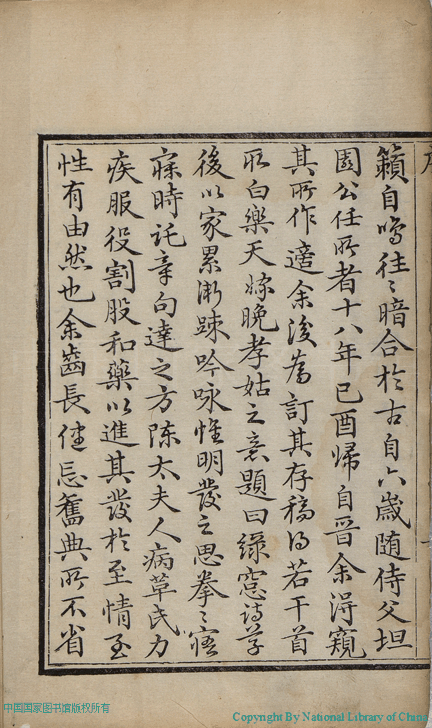 籟自鳴往〻暗合於古自六歲随侍父坦
園公任所者十八年已酉歸自晋余淂窺
其所作適余浚為訂其存稿得若干首
取白樂天嫁晚孝姑之意題曰綠窓詩草
後以家累漸疎吟咏惟明發之思拳〻寤
寐時託章句達之方陈太夫人病草氏力
疾服役割股和藥以進其發於至情至
性有由然也余齒長健忌舊典所不省
中国国家图书馆版权所有
Copyright By National Library of China